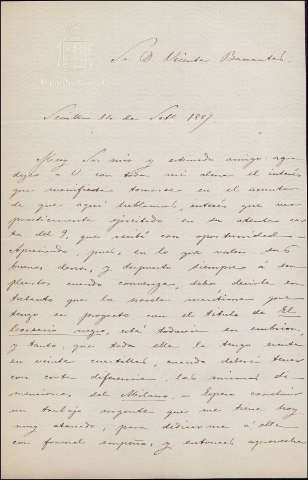 Sr. D. Vicente Barrantes.
Sevilla 14 de Set.e 1887
Muy Sr. mio y estimado amigo: agra-
dezco a V. con toda mi alma el interés
que manifiesta tomarse en el asunto
de que aquí hablamos, interés que veo
practicamente ejercitado en su atenta car-
ta del 9, que recibí con oportunidad.
Apreciando, pues, en lo que valen sus
buenos deseos, y dispuesto siempre á
cuando convenga, debo decirle en-
tretanto que la novela que
tengo en proyecto con el titulo de El
negro, está todavía en embrion,
y tanto, que toda ella la tengo
en veinte cuartillas, cuando deberá tener
con corta diferencia, las mismas di-
mensiones del Espero concluir
un trabajo urgente que me tiene hoy
muy atareado, para dedicarme á ella
con formal empeño, y entonces aprovecharé